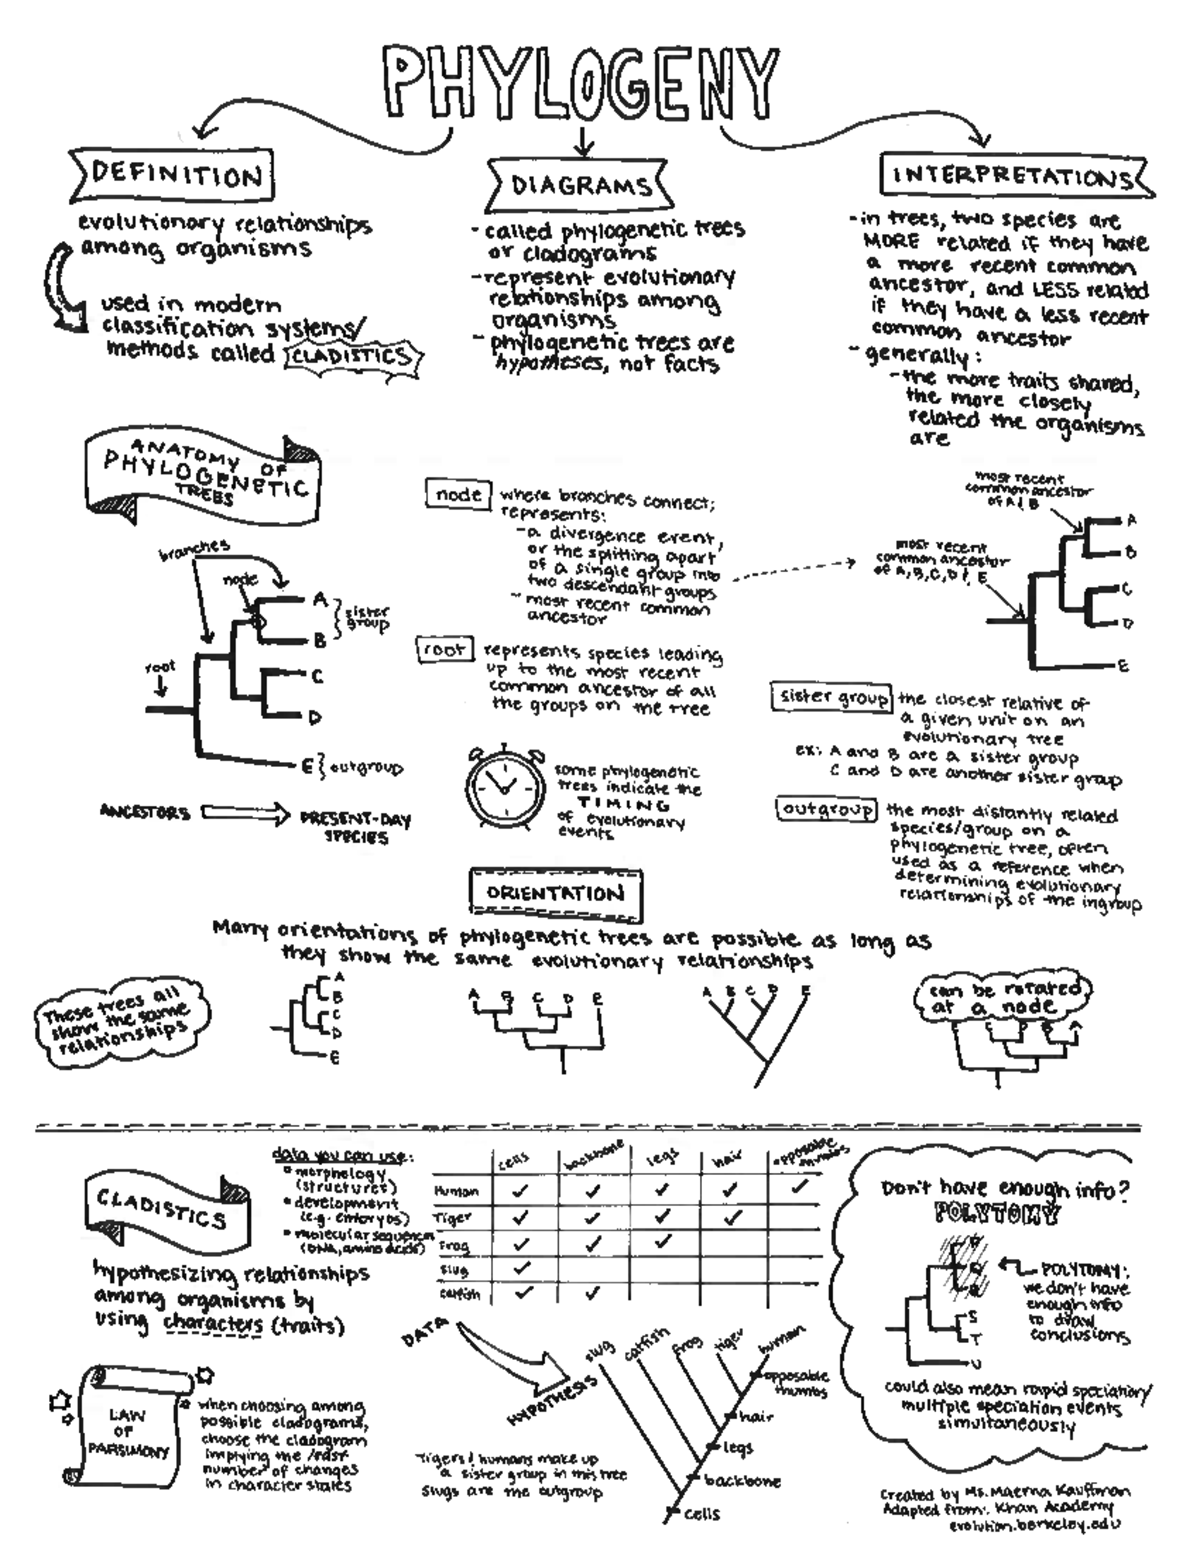 PHYLOGENY
DEFINITION
evolutionary relationships
among organisms
used in modern
classification systems/
methods called CLADISTICS
DIAGRAMS
- called phylogenetic trees
or cladograms
- represent evolutionary
relationships among
organisms
- phylogenetic trees are
hypotheses, not facts
INTERPRETATIONS
- in trees, two species are
MORE related if they have
a more recent common
ancestor, and LESS related
if they have a less recent
common ancestor
- generally:
- the more traits shared,
the more closely
related the organisms
are
ANATOMY OF
PHYLOGENETIC
TREES
branches
node
root
A
B
sister
group
C
D
E } outgroup
ANCESTORS
PRESENT-DAY
SPECIES
node where branches connect;
represents:
- a divergence event,
or the splitting apart
of a single group into
two descendant groups
- most recent common
ancestor
root represents species leading
up to the most recent
common ancestor of all
the groups on the tree
some phylogenetic
trees indicate the
TIMING
of evolutionary
events
most recent
common ancestor
of A & B
most recent
common ancestor
of A, B, C, D & E
A
B
C
D
E
sister group the closest relative of
a given unit on an
evolutionary tree
ex: A and B are a sister group
C and D are another sister group
outgroup the most distantly related
species/group on a
phylogenetic tree, often
used as a reference when
determining evolutionary
relationships of the ingroup
ORIENTATION
Many orientations of phylogenetic trees are possible as long as
they show the same evolutionary relationships
These trees all
show the same
relationships
A
B
C
D
E
A B C D E
A B C D E
can be rotated
at a node
CLADISTICS
hypothesizing relationships
among organisms by
using characters (traits)
data you can use:
• morphology
(structures)
• development
(e.g. embryos)
• molecular sequences
(DNA, amino acids)
cells backbone legs hair opposable thumbs
Human ✓ ✓ ✓ ✓ ✓
Tiger ✓ ✓ ✓ ✓
Frog ✓ ✓ ✓
Slug ✓
catfish ✓ ✓
DATA
HYPOTHESIS
slug catfish frog tiger human
opposable
thumbs
hair
legs
backbone
cells
Tigers & humans make up
a sister group in this tree
Slugs are the outgroup
LAW
OF
PARSIMONY
when choosing among
possible cladograms,
choose the cladogram
implying the least
number of changes
in character states
Don't have enough info?
POLYTOMY
S
T
U
POLYTOMY:
we don't have
enough info
to draw
conclusions
could also mean rapid speciation/
multiple speciation events
simultaneously
Created by Ms. Maerna Kauffman
Adapted from: Khan Academy
evolution.berkeley.edu